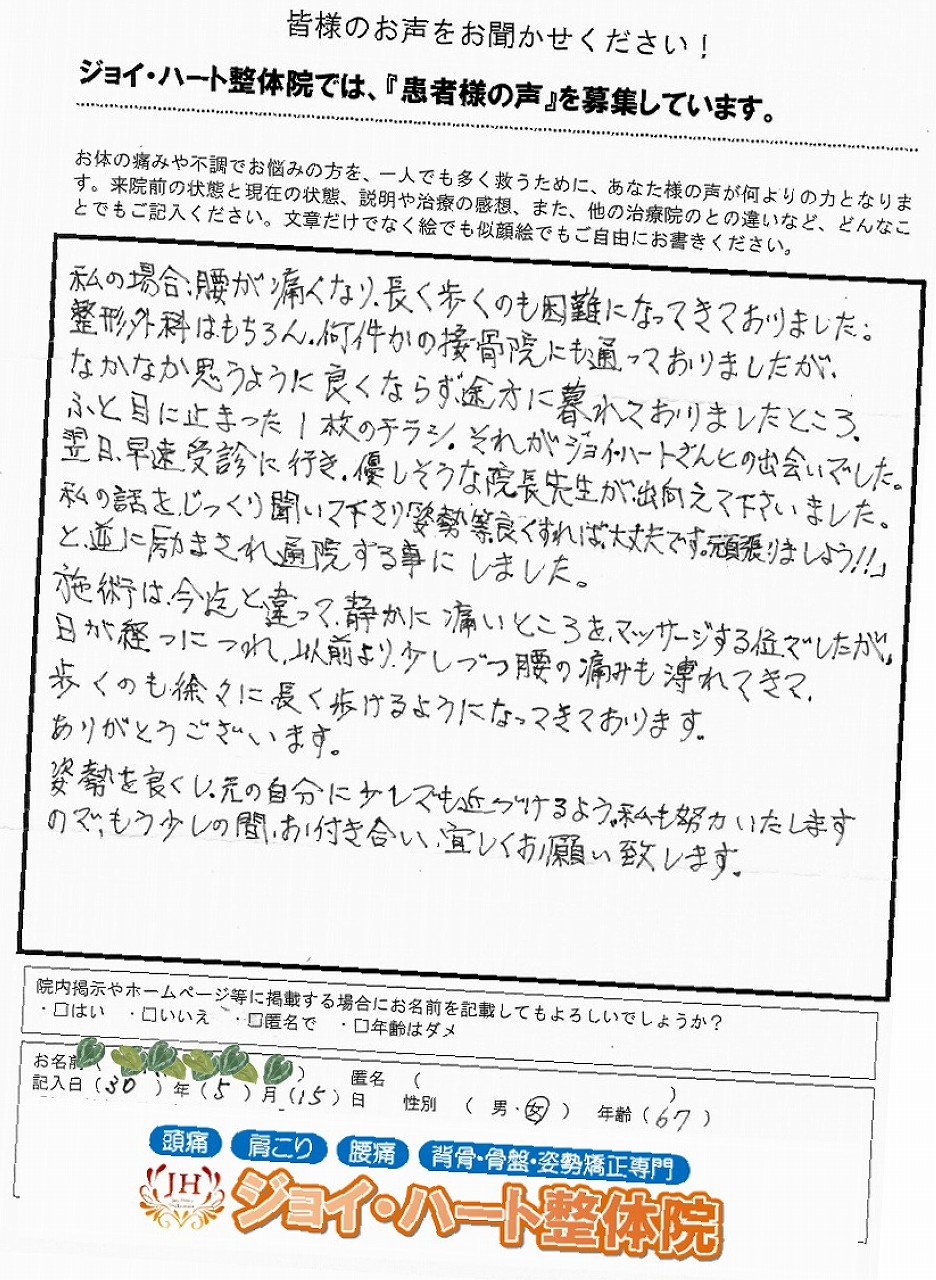 皆様のお声をお聞かせください！
ジョイ・ハート整体院では、『患者様の声』を募集しています。
お体の痛みや不調でお悩みの方を、一人でも多く救うために、あなた様の声が何よりの力となりま
す。来院前の状態と現在の状態、説明や治療の感想、また、他の治療院のとの違いなど、どんなこ
とでもご記入ください。文章だけでなく絵でも似顔絵でもご自由にお書きください。
私の場合、腰が痛くなり、長く歩くのも困難になってきておりました。
整形外科はもちろん、何件かの接骨院にも通っておりましたが、
なかなか思うように良くならず、途方に暮れておりましたところ、
ふと目に止まった1枚のチラシ。それがジョイ・ハートさんとの出会いでした。
翌日、早速受診に行き、優しそうな院長先生が、出向えて下さいました。
私の話を、じっくり聞いて下さり「姿勢等良くすれば、大丈夫です。頑張りましょう!!」
と、逆に励まされ、通院する事にしました。
施術は、今迄と違って、静かに痛いところを、マッサージする位でしたが、
日が経つにつれ、以前より、少しづつ腰の痛みも薄れてきて、
歩くのも徐々に長く歩けるようになってきております。
ありがとうございます。
姿勢を良くし、元の自分に少しでも近づけるよう、私も努力いたします
ので、もう少しの間、お付き合い、宜しくお願い致します。
院内掲示やホームページ等に掲載する場合にお名前を記載してもよろしいでしょうか？
・□はい ・□いいえ ・□匿名で ・□年齢はダメ
お名前 ( ) 匿名 ( )
記入日 ( 30 ) 年 ( 5 ) 月 ( 15 ) 日 性別 ( 男・女 ) 年齢 ( 67 )
頭痛 肩こり 腰痛 背骨・骨盤・姿勢矯正専門
JH ジョイ・ハート整体院